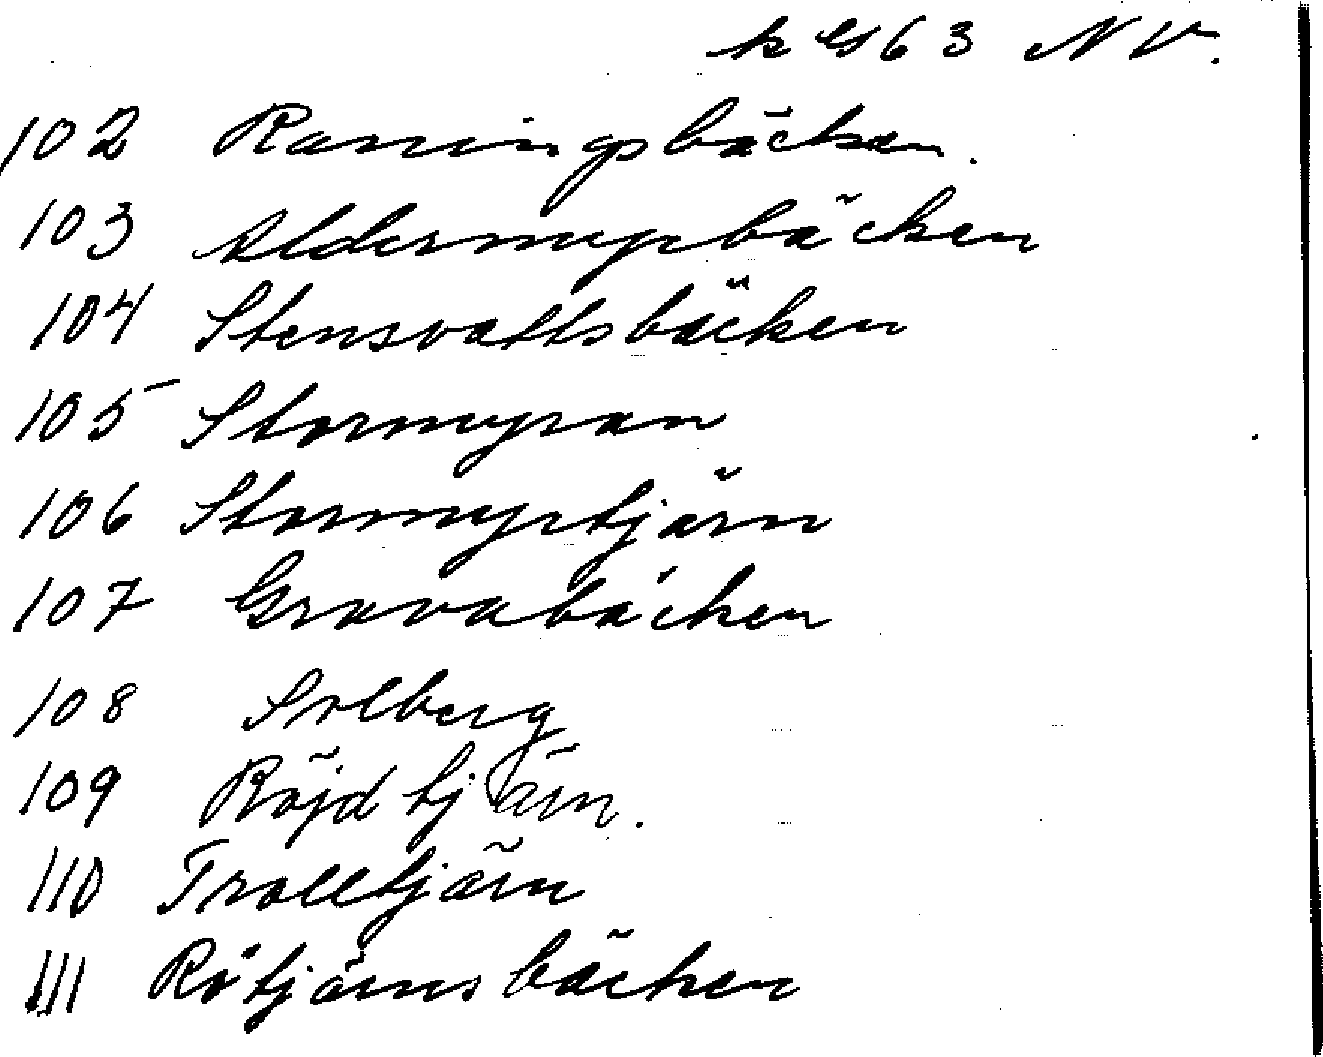 k G 63 NV.
102 Ranningsbäcken.
103 Aldermyrbäcken
104 Stensvattsbäcken
105 Stormyran
106 Stormyrtjärn
107 Gravabäcken
108 Solberg
109 Röjdtjärn.
110 Trolltjärn
111 Rötjärnsbäcken